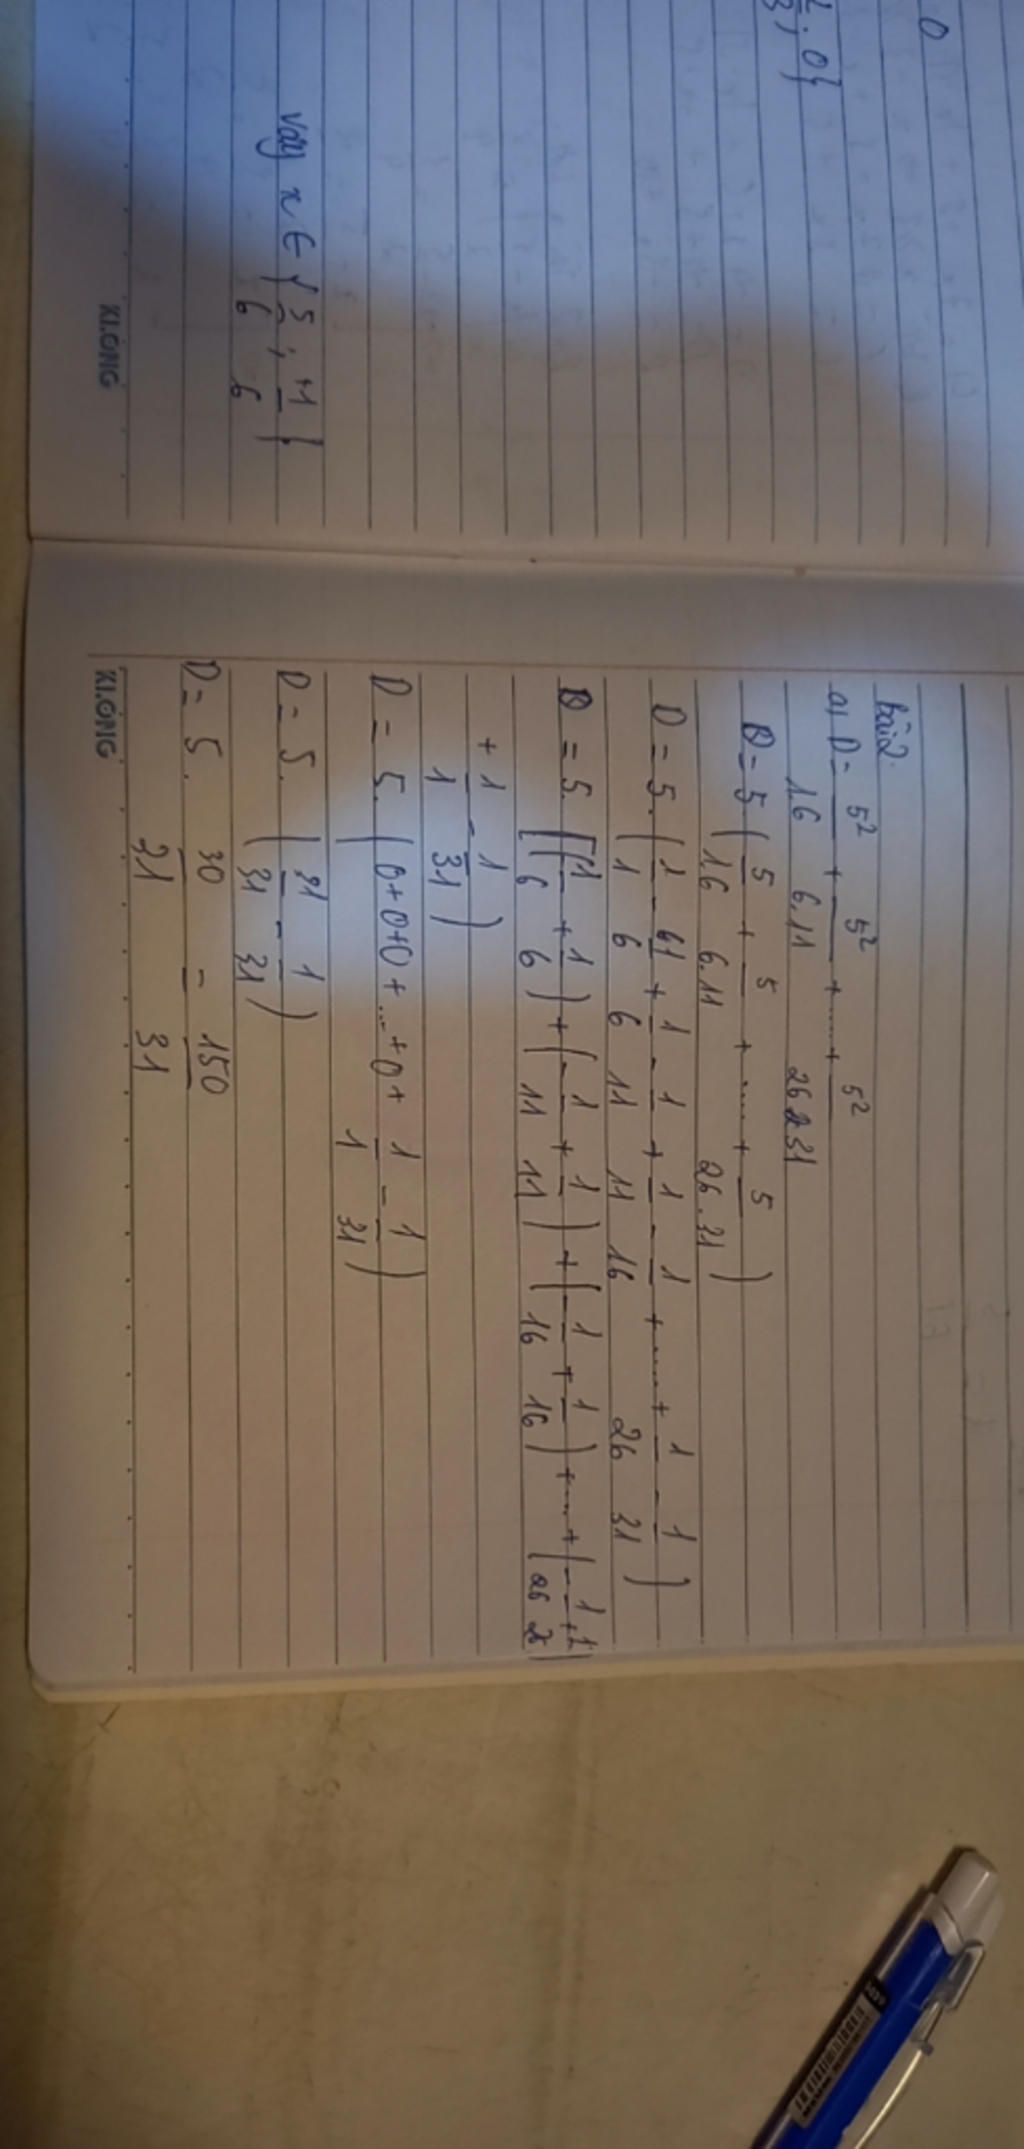 0
; 0}
vậy x ∈ { 5/6 ; 11/6 }
KLONG
bài 2.
a, D = 5²/1.6 + 5²/6.11 + ..... + 5²/26.31
D = 5 ( 5/1.6 + 5/6.11 + ..... + 5/26.31 )
D = 5. ( 1/1 - 1/6 + 1/6 - 1/11 + 1/11 - 1/16 + ..... + 1/26 - 1/31 )
D = 5. [ ( -1/6 + 1/6 ) + ( -1/11 + 1/11 ) + ( -1/16 + 1/16 ) + ... + ( -1/26 + 1/26 )
+ 1/1 - 1/31 )
D = 5. ( 0+0+0+ ... +0 + 1/1 - 1/31 )
D = 5. ( 31/31 - 1/31 )
D = 5. 30/31 = 150/31
KLONG